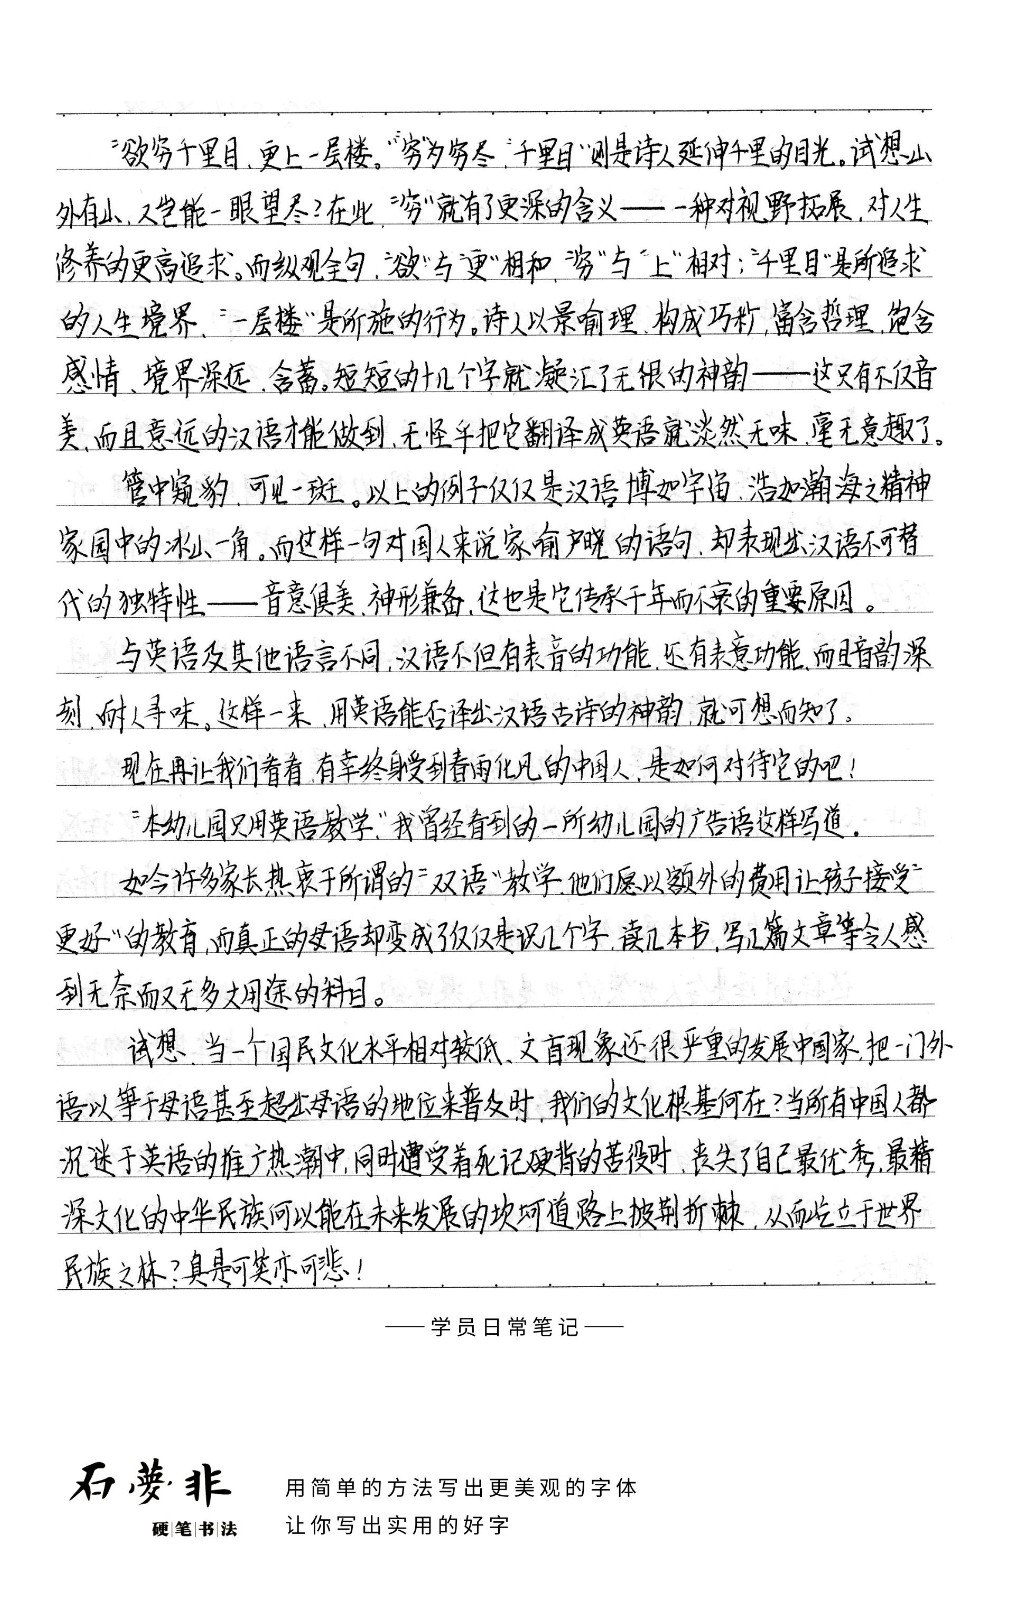 “欲穷千里目，更上一层楼。”“穷”为穷尽，“千里目”则是诗人延伸千里的目光。试想山
外有山，又岂能一眼望尽？在此，“穷”就有了更深的含义——一种对视野拓展，对人生
修养的更高追求。而纵观全句，“欲”与“更”相和，“穷”与“上”相对；“千里目”是所追求
的人生境界，“一层楼”是所施的行为。诗人以景喻理，构成巧妙，富含哲理，饱含
感情、境界深远、含蓄。短短的十几个字就凝汇了无限的神韵——这只有不仅音
美，而且意远的汉语才能做到，无怪乎把它翻译成英语就淡然无味，毫无意趣了。
管中窥豹，可见一斑。以上的例子仅仅是汉语博如宇宙、浩如瀚海之精神
家园中的冰山一角。而这样一句对国人来说家喻户晓的语句，却表现出汉语不可替
代的独特性——音意俱美，神形兼备，这也是它传承千年而不衰的重要原因。
与英语及其他语言不同，汉语不但有表音的功能，还有表意功能，而且音韵深
刻，耐人寻味。这样一来，用英语能否译出汉语古诗的神韵，就可想而知了。
现在再让我们看看，有幸终身受到春雨化风的中国人，是如何对待它的吧！
“本幼儿园只用英语教学，”我曾经看到的一所幼儿园的广告语这样写道。
如今许多家长热衷于所谓的“双语”教学，他们愿以额外的费用让孩子接受“
更好”的教育，而真正的母语却变成了仅仅是识几个字，读几本书，写几篇文章等令人感
到无奈而又无多大用途的科目。
试想，当一个国民文化水平相对较低、文盲现象还很严重的发展中國家，把一门外
语以等于母语甚至超出母语的地位来普及时，我们的文化根基何在？当所有中国人都
沉迷于英语的推广热潮中，同时遭受着死记硬背的苦役时，丧失了自己最优秀，最精
深文化的中华民族何以能在未来发展的坎坷道路上披荆折棘，从而屹立于世界
民族之林？真是可笑亦可悲！
——学员日常笔记——
石夢非
硬笔书法
用简单的方法写出更美观的字体
让你写出实用的好字